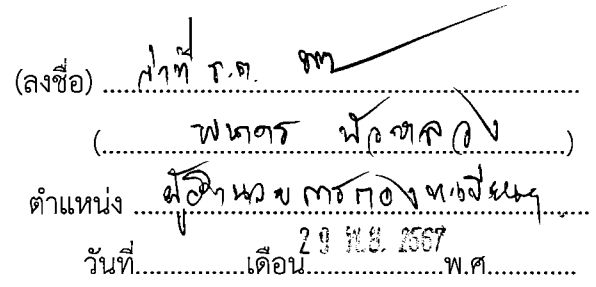 (ลงชื่อ) ว่าที่ ร.ต.
(พนากร บัวหลวง)
ตำแหน่ง ผู้อำนวยการกองทะเบียนฯ
29 พ.ย. 2567
วันที่..............เดือน......................พ.ศ..............